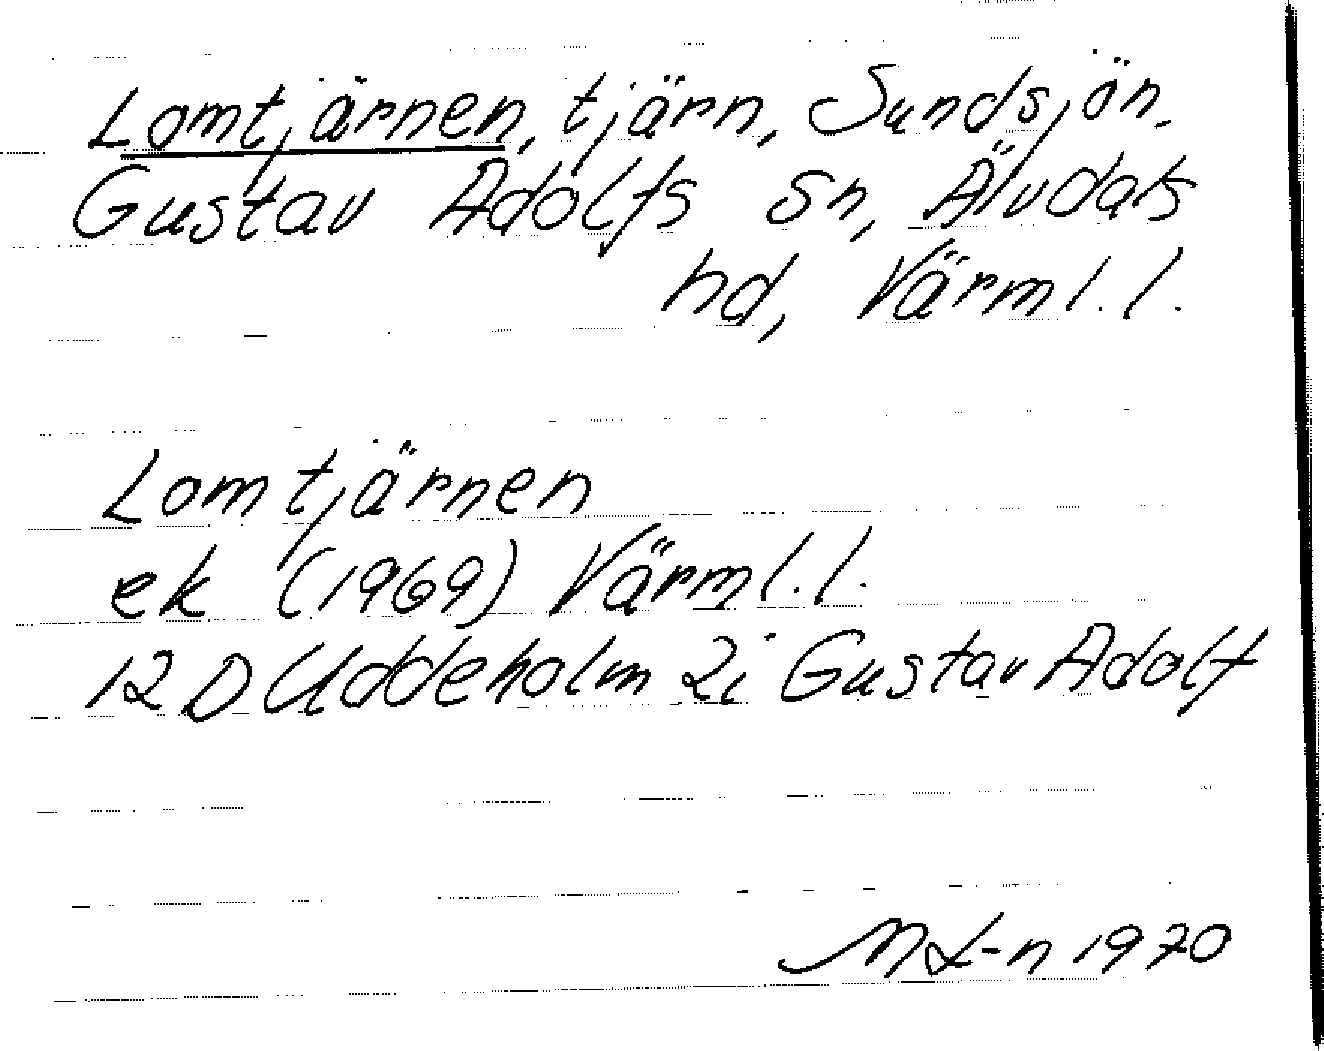 Lomtjärnen, tjärn, Sundsjön.
Gustav Adolfs sn, Älvdals
hd, Värml. l.
Lomtjärnen
ek (1969) Värml. l.
12 D Uddeholm 2i Gustav Adolf
ML-n 1970